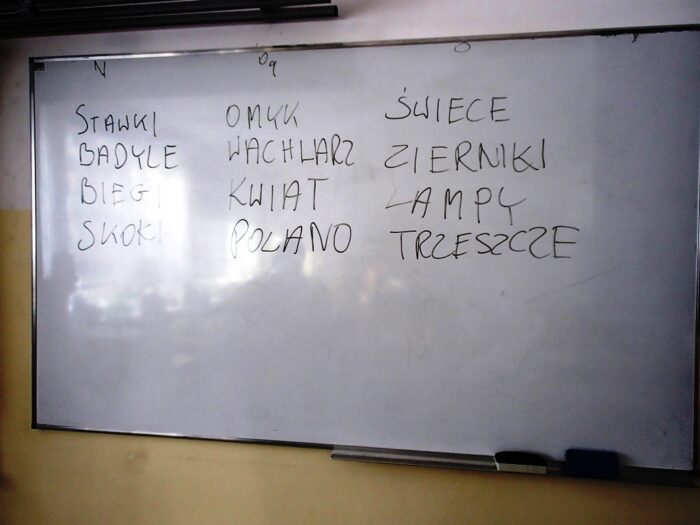 N
STAWKI
BADYLE
BIEGI
SKOKI
Og
OMYK
WACHLARZ
KWIAT
POLANO
O
ŚWIECE
ZIERNIKI
LAMPY
TRZESZCZE